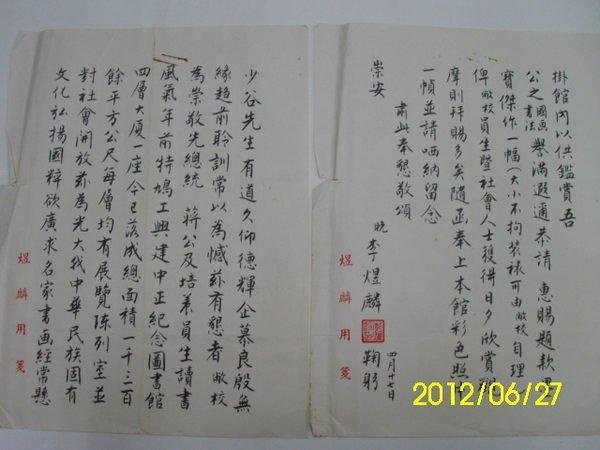 少谷先生有道久仰德輝企慕良殷無
緣趨前聆訓常以為憾茲有懇者敝校
為崇敬先總統 蔣公及培養員生讀書
風氣年前特鳩工興建中正紀念圖書館
四層大廈一座今已落成總面積一千三百
餘平方公尺每層均有展覽陳列室並
對社會開放茲為光大我中華民族固有
文化弘揚國粹欲廣求名家書画經常懸
煜麟用箋
掛館內以供鑑賞吾
公之國画書法譽滿遐邇恭請 惠賜題款墨
寶傑作一幅(大小不拘裝裱可由敝校自理)
俾敝校員生暨社會人士獲得日夕欣賞觀
摩則拜賜多矣隨函奉上本館彩色照
一幀並請哂納留念
肅此奉懇敬頌
崇安
晚 李煜麟 鞠躬
四月廿七日
煜麟用箋
2012/06/27